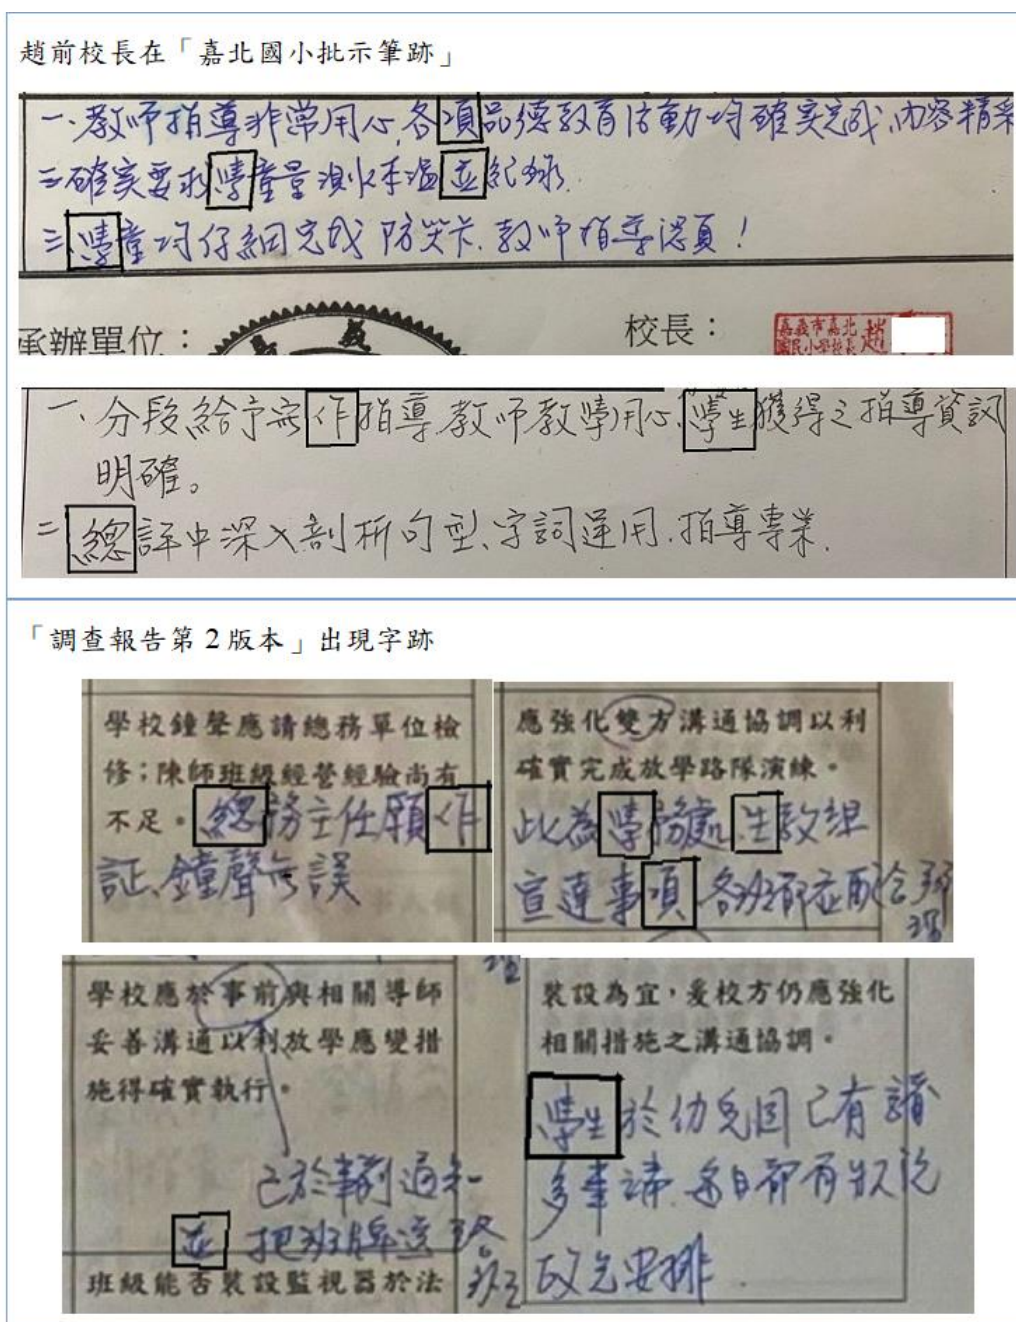 趙前校長在「嘉北國小批示筆跡」
一、教師指導非常用心,各項品德教育活動均確實完成,內容精采
二確實要求學童量測水溫並紀錄.
三、學童均仔細完成防災卡.教師指導認真!
承辦單位:
校長:
嘉義市嘉北
國民小學校長
趙
一、分段給予寫作指導.教師教學用心,學生獲得之指導資訊
明確。
二總評中深入剖析句型、字詞運用.指導專業.
「調查報告第 2 版本」出現字跡
學校鐘聲應請總務單位檢
修;陳師班級經營經驗尚有
不足。總務主任願作
証、鐘聲無誤
應強化雙方溝通協調以利
確實完成放學路隊演練。
此為學務處生教組
宣達事項 各班都應配合辦
理
學校應於事前與相關導師
妥善溝通以利放學應變措
施得確實執行。
已於事前通知
並把班牌送至各
班
班級能否裝設監視器於法
裝設為宜,爰校方仍應強化
相關措施之溝通協調。
學生於幼兒園已有諸
多事講.每日都有狀況